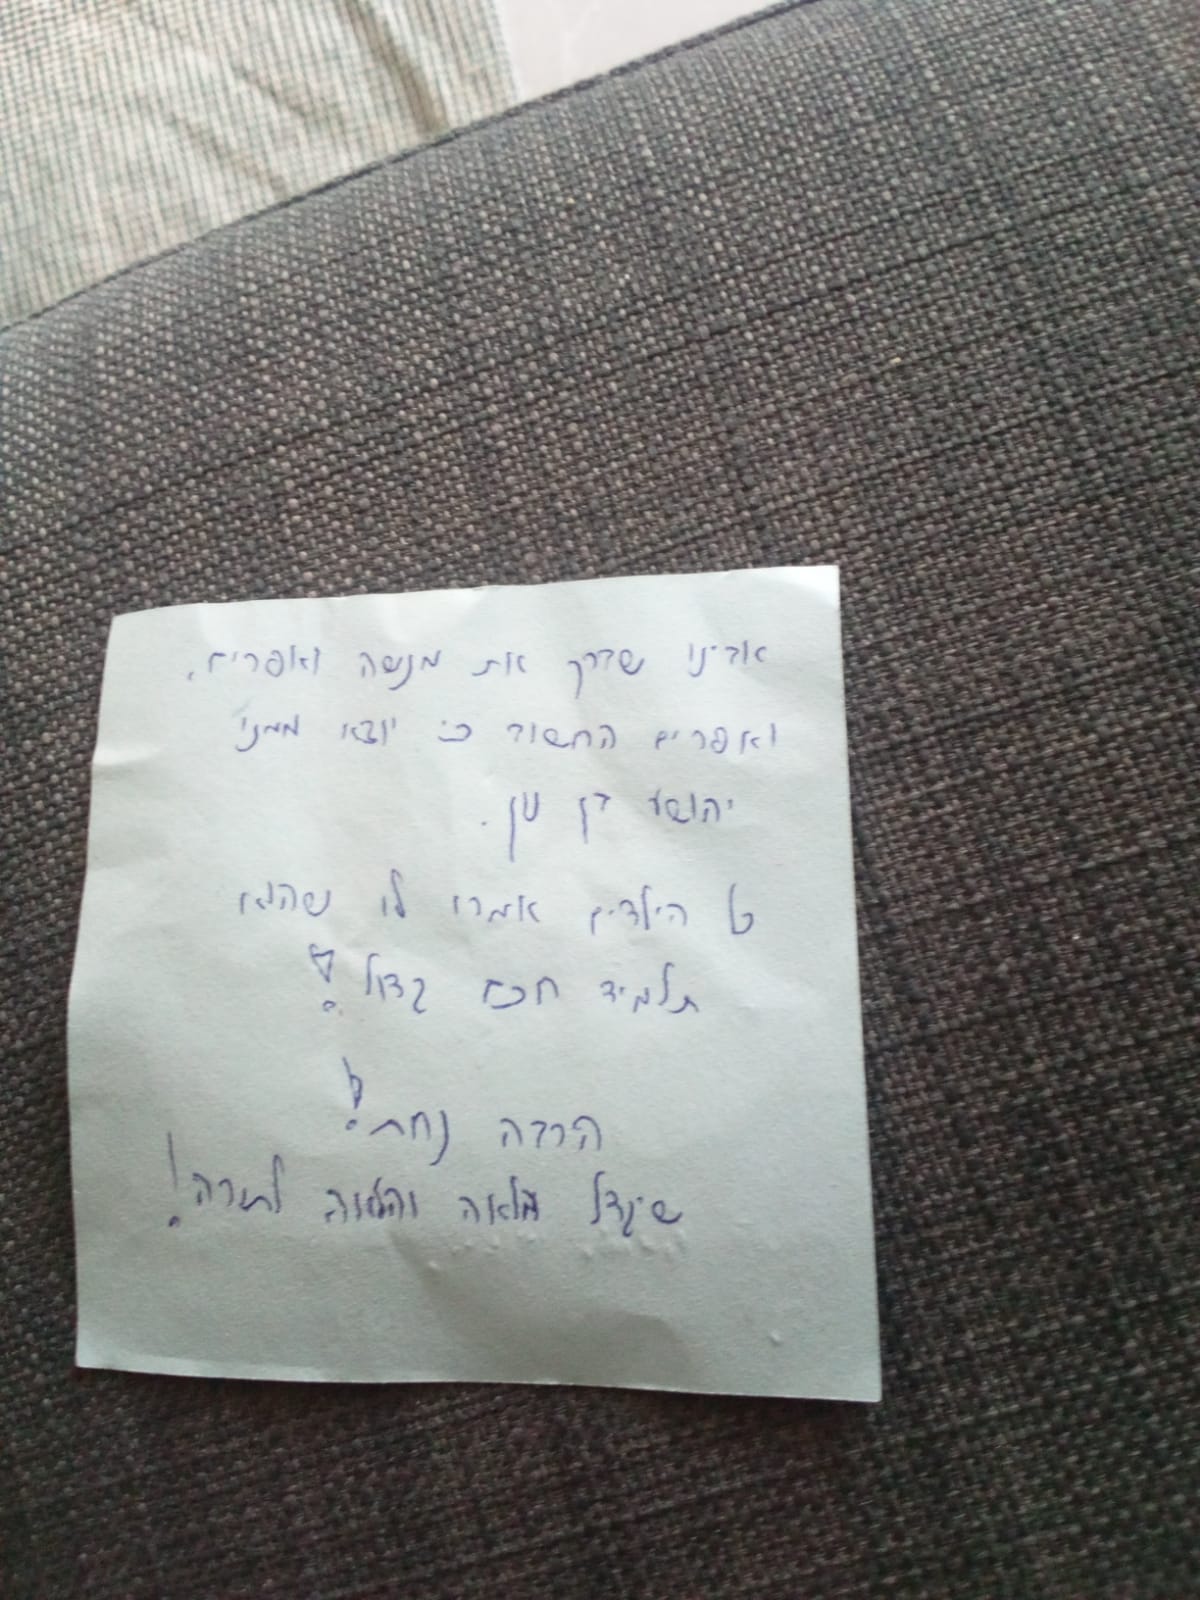 אבינו שברך את מנשה ואפרים.
ואפרים החשוב כי יוצא ממנו
יהושע בן נון.
כל הילדים אמרו לו שהוא
תלמיד חכם גדול!
הרבה נחת!
שיגדל מלאה והלאה לתורה!